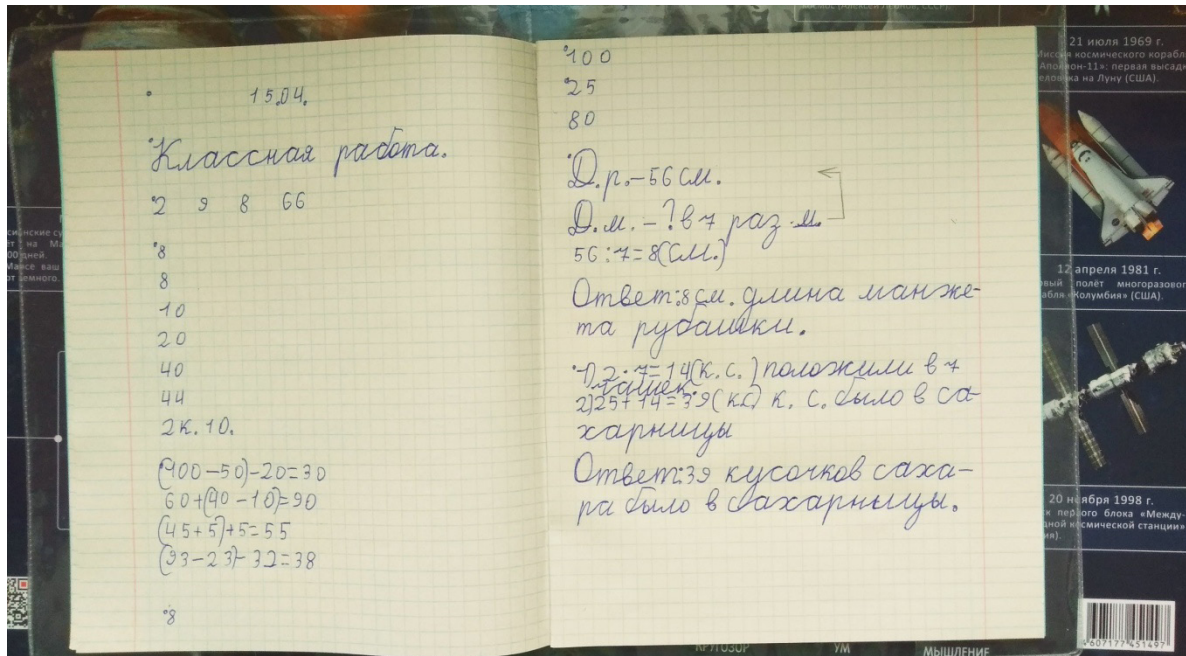 космос (Алексей Леонов, СССР).
15.04.
Классная работа.
2 9 8 66
8
8
10
20
40
44
2к. 10.
(100-50)-20=30
60+(40-10)=90
(45+5)+5=55
(93-23)-32=38
8
100
25
80
Д.р.-56см.
Д.м. -? в 7 раз м.
56:7=8(см.)
Ответ:8см. длина манже-
та рубашки.
1) 2·7=14(к.с.) положили в 7
чашек.
2)25+14=39(кс) к. с. было в са-
харницы
Ответ:39 кусочков саха-
ра было в сахарницы.
21 июля 1969 г.
Миссия космического корабля
«Аполлон-11»: первая высадка
человека на Луну (США).
12 апреля 1981 г.
полёт многоразового
«Колумбия» (США).
20 ноября 1998 г.
первого блока «Между-
космической станции»
4607177451497
КРУГОЗОР
УМ
МЫШЛЕНИЕ